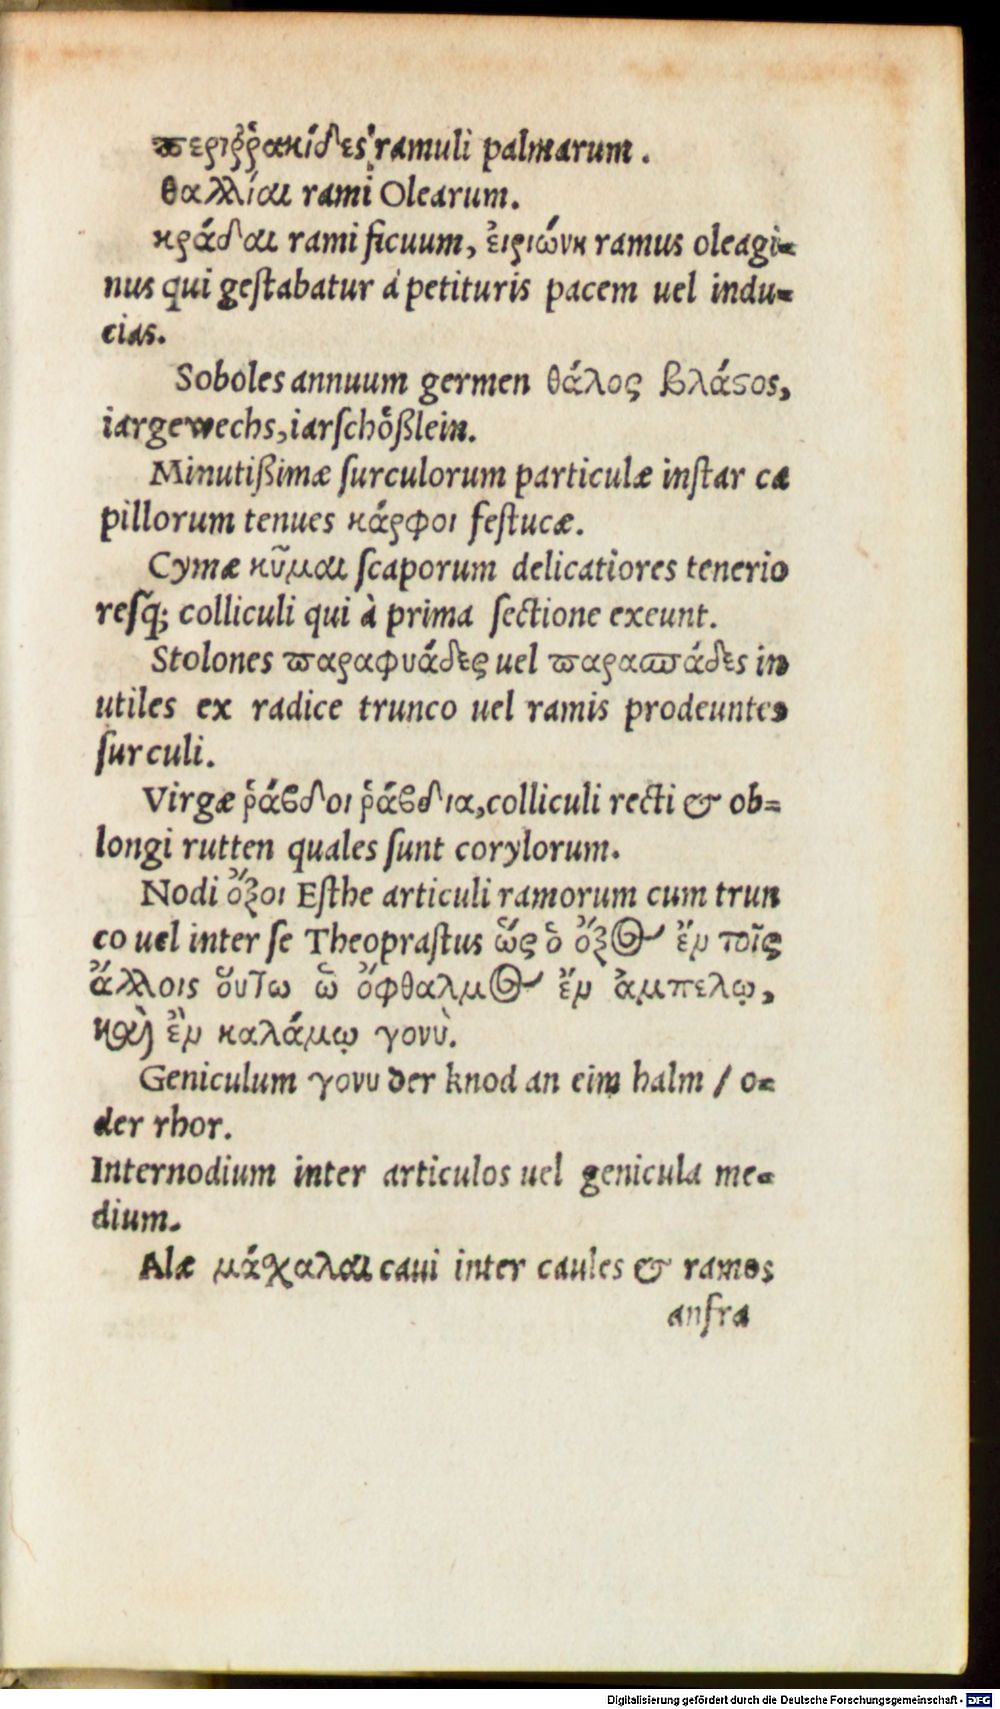 περιῤῥακίδες ramuli palmarum.
θαλλίαι rami Olearum.
κράδαι rami ficuum, ἐιριώνκ ramus oleagi=
nus qui geſtabatur á petituris pacem uel indu=
cias.
Soboles annuum germen θάλος βλάϛος,
iargewechs, iarſchoͤßlein.
Minutißimæ ſurculorum particulæ inſtar ca
pillorum tenues κάρφοι feſtucæ.
Cymæ κῦμαι ſcaporum delicatiores tenerio
reſq; colliculi qui à prima ſectione exeunt.
Stolones παραφυάδες uel παρασπάδες in
utiles ex radice trunco uel ramis prodeuntes
ſurculi.
Virgæ ῥάβδοι ῥάβδια, colliculi recti & ob=
longi rutten quales ſunt corylorum.
Nodi ὄζοι Eſthe articuli ramorum cum trun
co uel inter ſe Theopraſtus ὥς ὁ ὄξος ἔν τοῖς
ἄλλοις ὅυτω ὡ ὄφθαλμος ἔν ἀμπελῳ,
καὶ ἒν καλάμῳ γονυ.
Geniculum γονυ der knod an eim halm / o=
der rhor.
Internodium inter articulos uel genicula me=
dium.
Alæ μάχαλαι caui inter caules & ramos
anfra
Digitalisierung gefördert durch die Deutsche Forschungsgemeinschaft - DFG